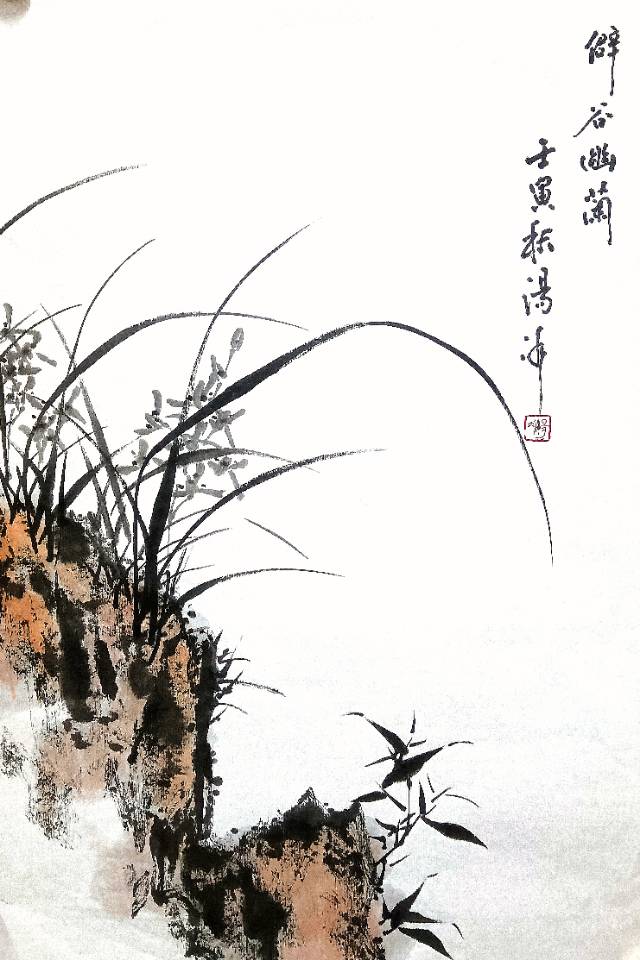 僻谷幽蘭
壬寅秋湯